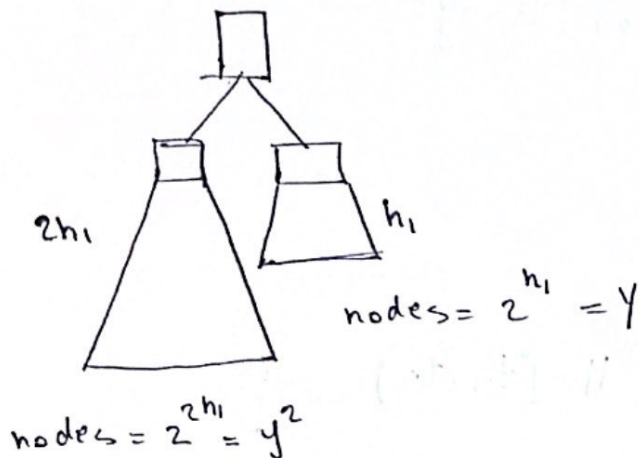 2h₁
h₁
nodes = 2^h₁ = Y
nodes = 2^2h₁ = y²